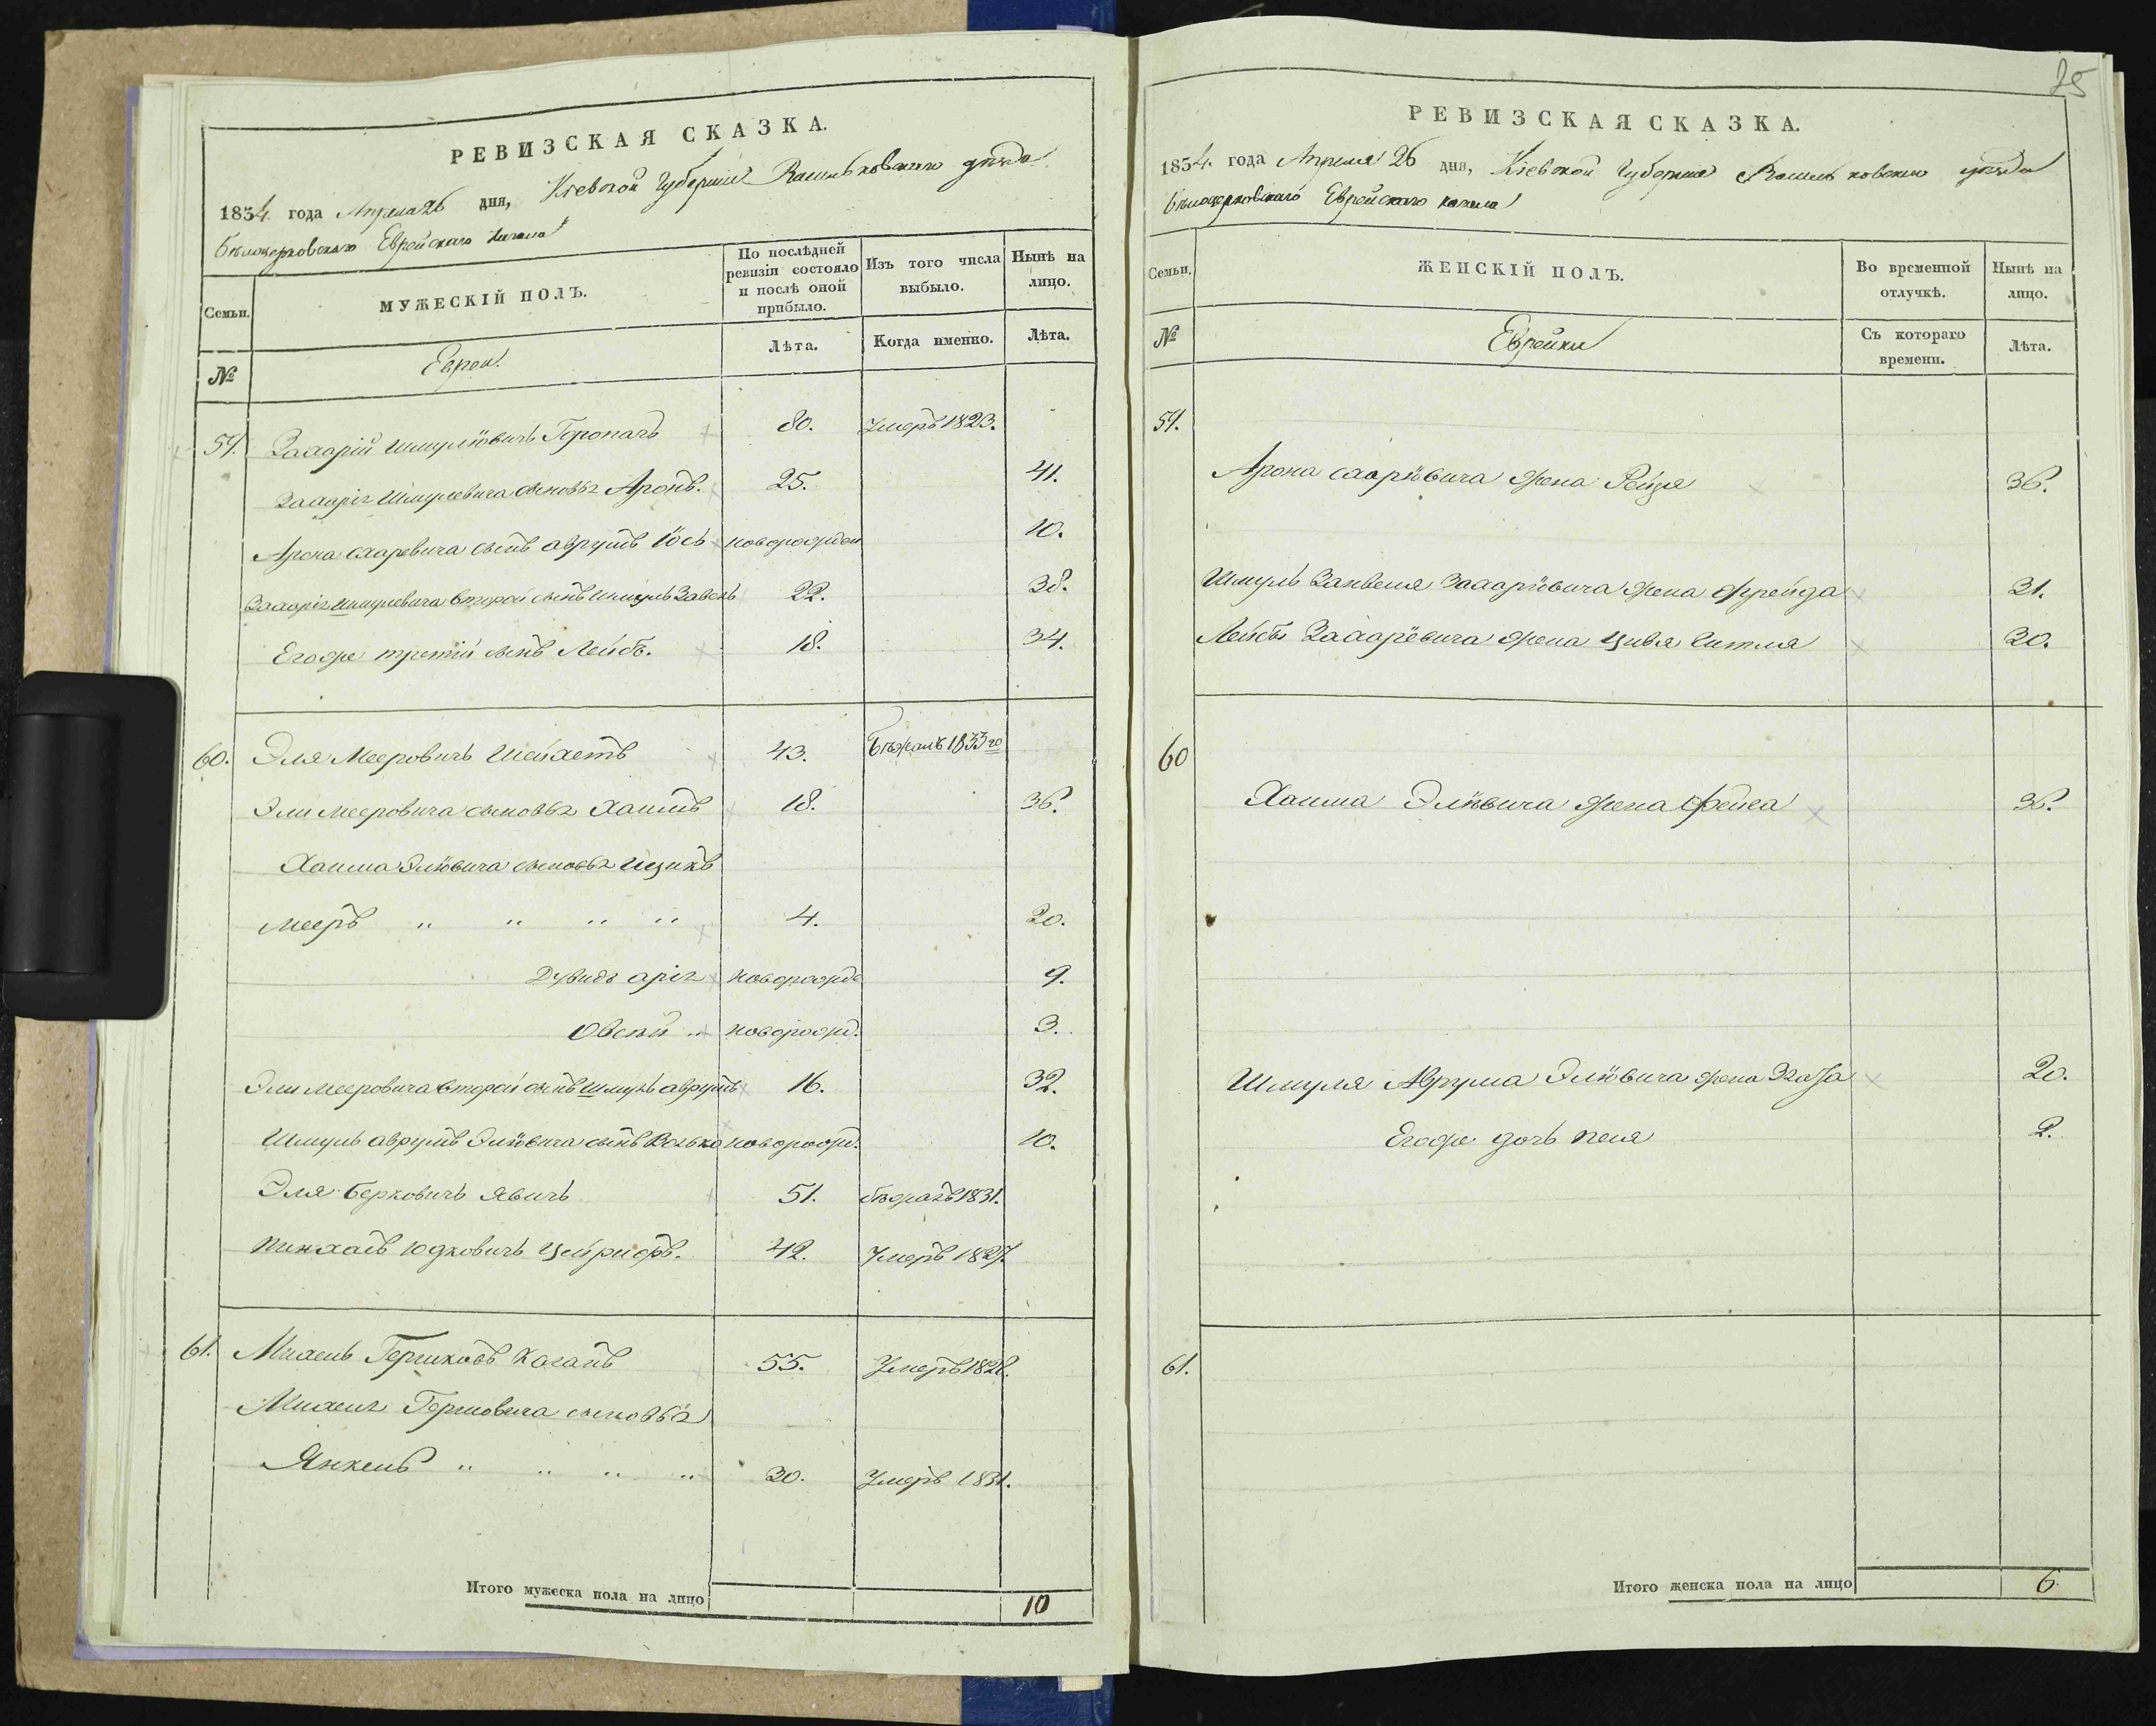 25
РЕВИЗСКАЯ СКАЗКА.
1834 года Апреля 26 дня, Кіевской Губерніи Васильковского уѣзда
Бѣлоцерковского Еврейского кагала
Семьи.
МУЖЕСКІЙ ПОЛЪ.
По послѣдней ревизіи состояло и послѣ оной прибыло.
Изъ того числа выбыло.
Нынѣ на лицо.
№
Евреи.
Лѣта.
Когда именно.
Лѣта.
59. Захарій Шмулiовичъ 80. Умеръ 1823.
Захарія Шмулевича сыновья Аронъ. 25. 41.
Арона сынъ аврумъ Iось новорожден 10.
Захарія Шмулевича второй сынъ Шмуль 22. 38.
Егоже третій сынъ Лейбъ. 18. 34.
60. Эля Мееровичъ Шейхетъ 43. Бѣжалъ 1833 го
Эли Мееровича сыновья Хаимъ 18. 36.
Хаима Элiовича сыновья Ицикъ
Мееръ " " " " 4. 20.
Дувидъ арія новорожд 9.
Овсѣй " новорожд. 3.
Эли Мееровича второй сынъ Шмуль аврумъ 16. 32.
Шмуль аврумъ Элiовича сынъ Волько новорожд. 10.
Эля Берковичъ Явичъ 51. бѣжалъ 1831.
Пинхасъ Юдковичъ 42. Умеръ 1827.
61. Михель Гершковъ Каганъ 55. Умеръ 1828.
Михеля Гершовича сыновья
Янкель " " " " 20. Умеръ 1831.
Итого мужеска пола на лицо 10
РЕВИЗСКАЯ СКАЗКА.
1834. года Апреля 26 дня, Кіевской Губерніи Васильковского уѣзда
Бѣлоцерковскаго Еврейскаго кагала
Семьи.
ЖЕНСКІЙ ПОЛЪ.
Во временной отлучкѣ.
Нынѣ на лицо.
№
Еврейки
Съ котораго времени.
Лѣта.
59.
Арона жена Рейзя 36.
Шмуль Занвеля Захарiовича жена Фрейда 31.
Лейбы Захарiовича жена Цивя Гитля 30.
60
Хаима Элiовича жена Фейга 36.
Шмуля Аврума Элiовича жена 20.
Егоже дочь Песя 2.
61.
Итого женска пола на лицо 6